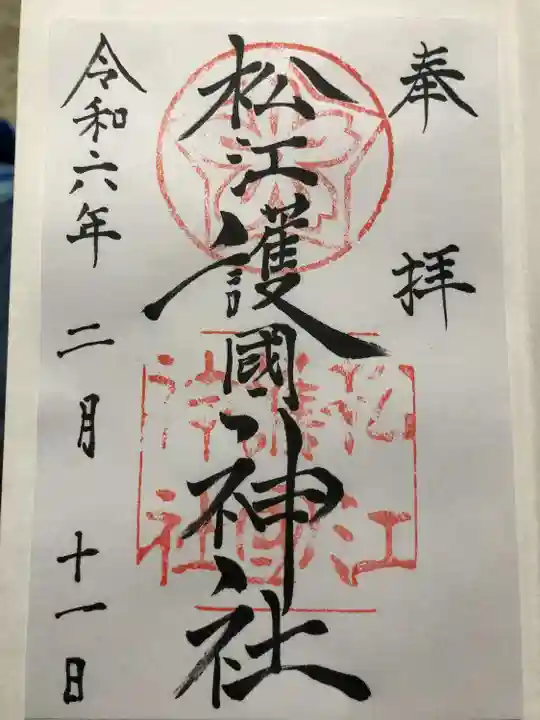 奉拝
松江護國神社
松江
護國
神社
令和六年二月十一日